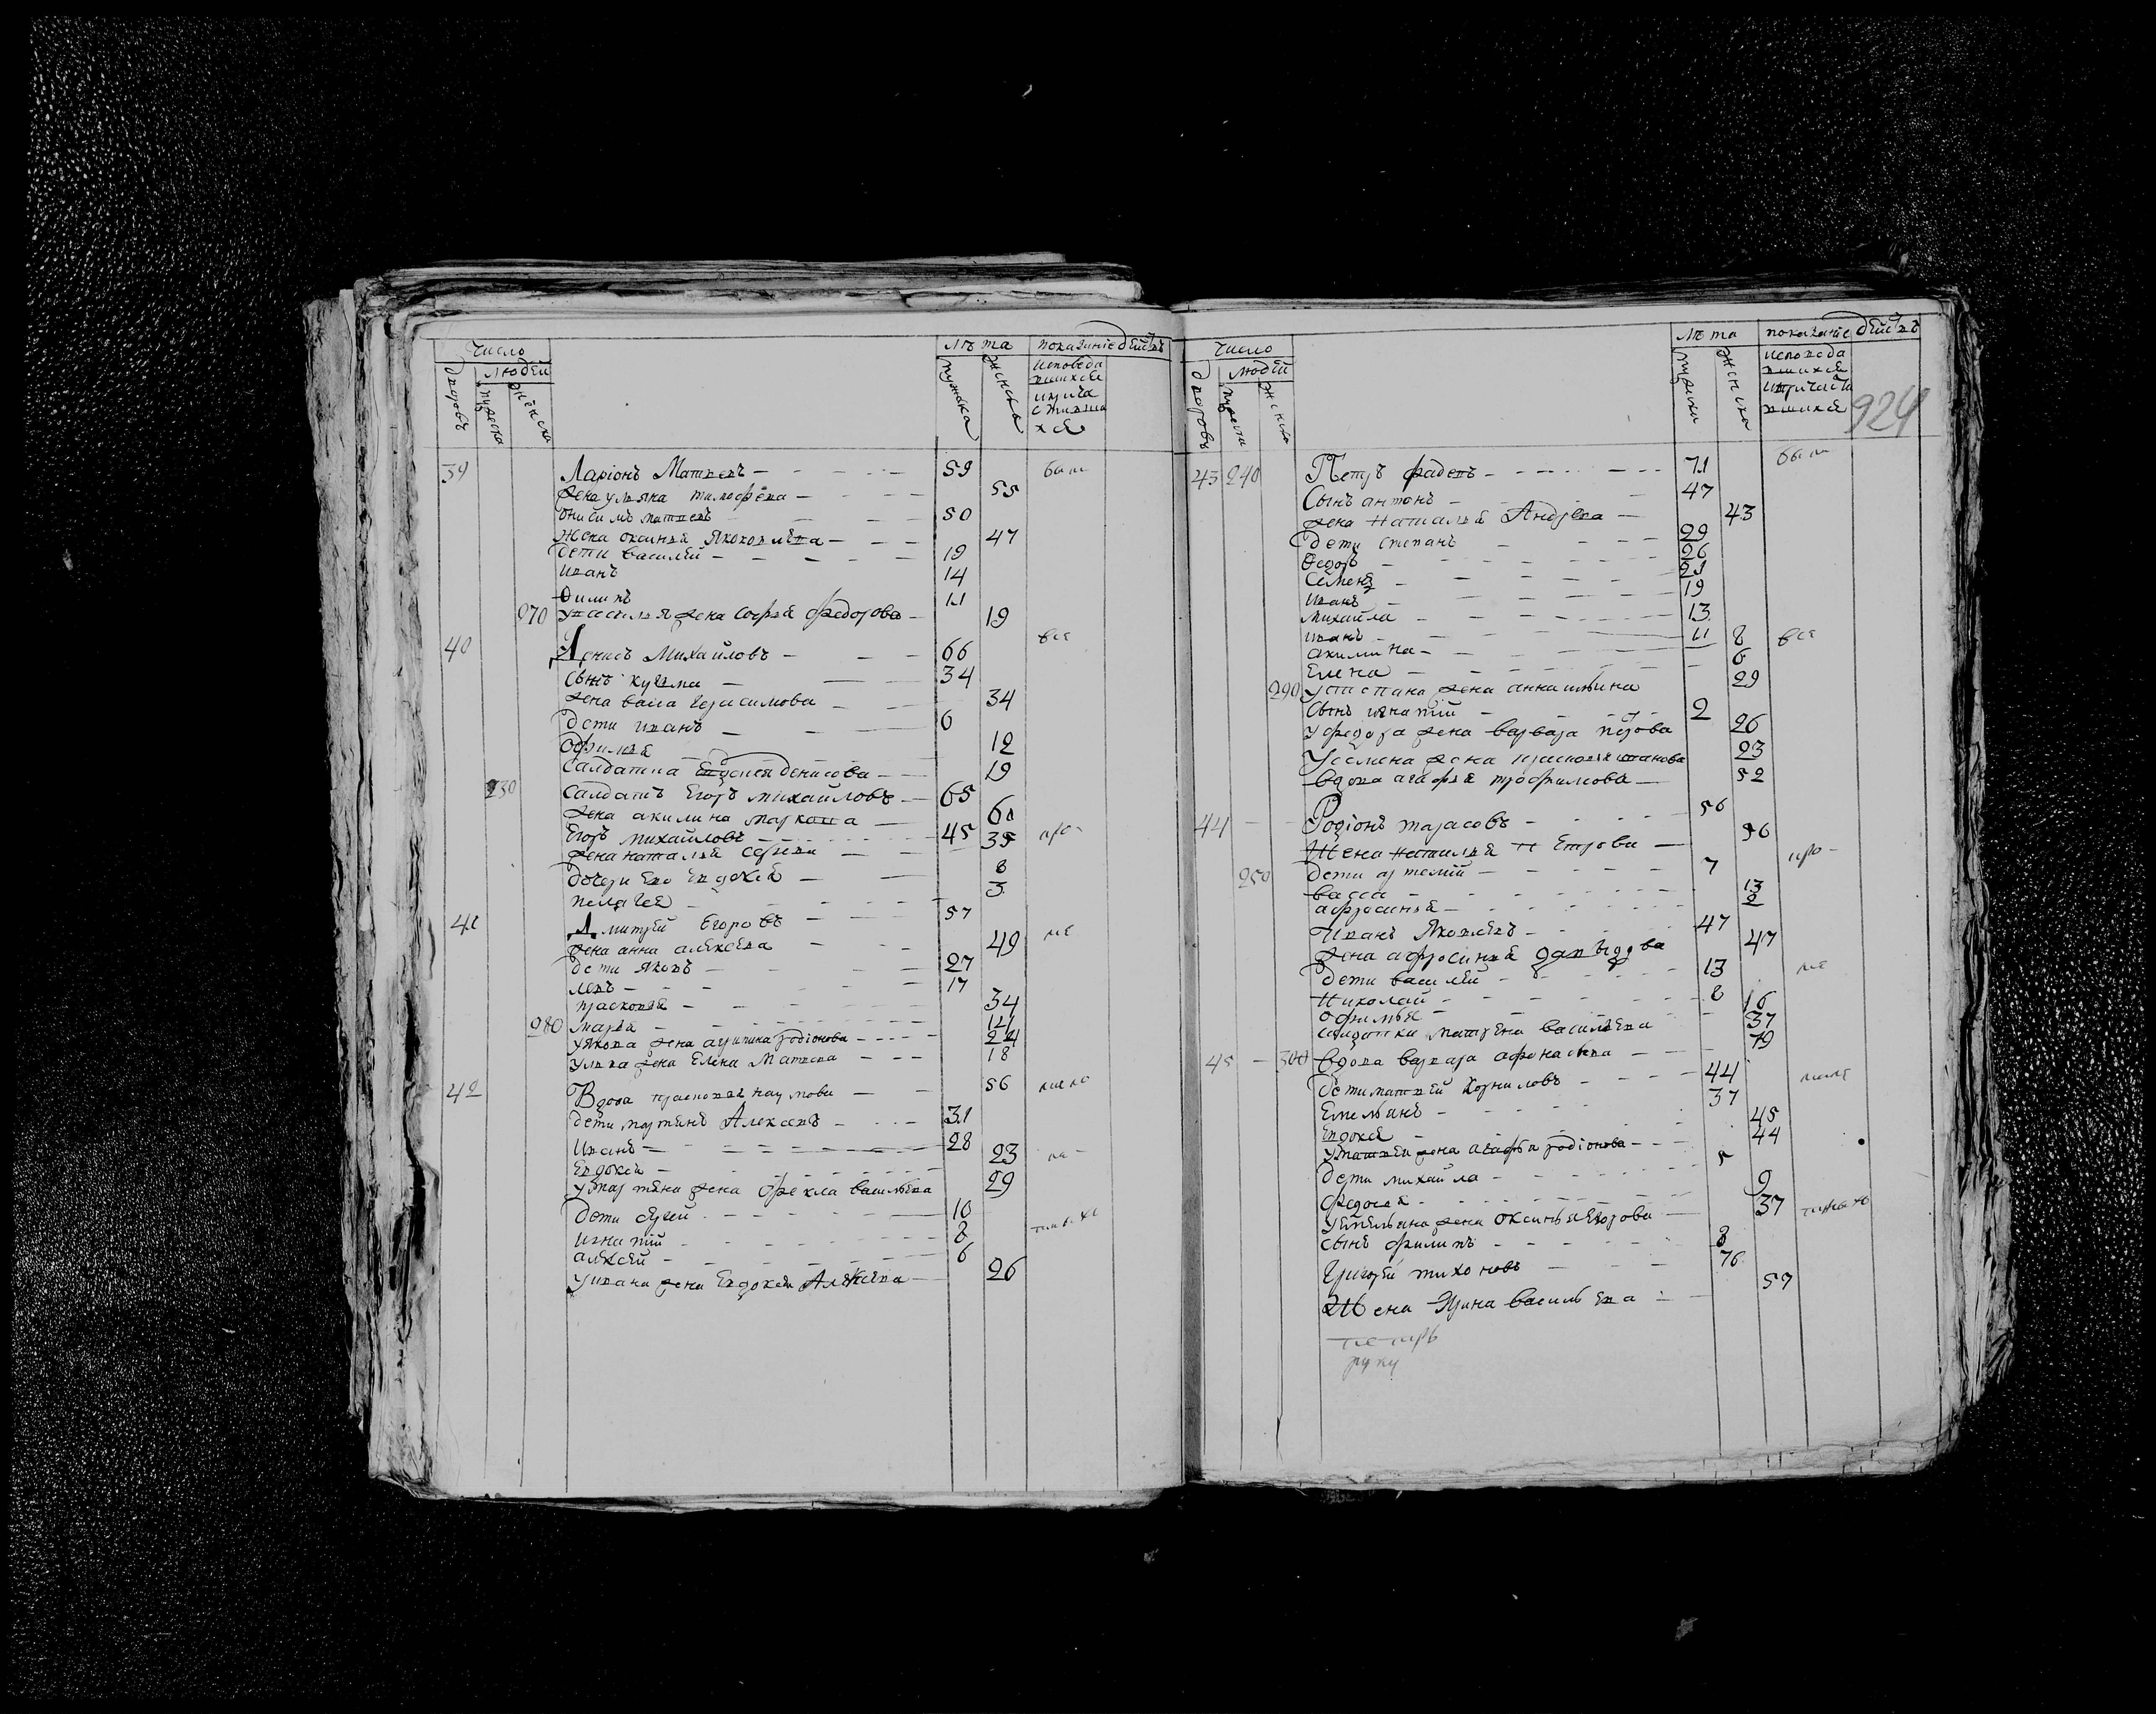 Число
людей
дворовъ
мужеска
женска
лѣта
мужеска
женска
показаніе действъ
исповеда
вшихсе
иприча
стивши
хсе
39 Ларіонъ Матвевъ 59 были
жена ульяна тимофева 55
онисимъ матвевъ 50
жена оксинья Яковлева 47
дети василей 19
иванъ 14
Филипъ 11
270 увасилья жена софья федорова 19
40 Денисъ Михайловъ 66 все
сынъ кузма 34
жена васа герасимова 34
дети иванъ 6
офимья 12
салдатка Евдокея денисова 19
230 салдатъ Егоръ михайловъ 65
жена акилина маркова 60
Егоръ михайловъ 45
жена наталья 35
дочери Ево Евдокея 8
пелагея 3
41 Дмитрей Егоровъ 57
жена анна алексева 49
дети яковъ 27
левъ 17
прасковья 34
280 марья 14
уякова жена агрипина родіонова 24
ульва жена Елена Матвева 18
42 Вдова прасковья наумова 56
дети мартинъ Алексевъ 31
Иванъ 28
Евдокея 23
умартина жена Фекла васильева 29
дети сергей 10
игнатій 8
алексей 6
уивана жена Евдокея Алексева 26
Число
людей
дворовъ
мужеска
женска
лѣта
мужеска
женска
показаніе действъ
исповеда
вшихсе
ипричасти
вшихсе
924
43 240 Петръ фадевъ 71 были
Сынъ антонъ 47
жена наталья Андрева 43
Дети степанъ 29
Федоръ 26
Семенъ 21
Иванъ 19
михайла 13
иванъ 11 все
акилина 8
Елена 6
290 устепана жена анна ильина 29
сынъ игнатій 2
уфедора жена варвара петрова 26
усемена жена прасковья иванова 23
вдова агафья трофимова 52
44 Родіонъ тарасовъ 56
Жена наталья Петрова 56
250 дети артемій 7
васса 13
афросинья 8
Иванъ Яковлевъ 47
жена афросинья давыдова 47
дети василей 13
николай 8
офимья 16
салдатка матрена васильева 37
45 300 вдова варвара афонасьева 79
дети матвей корниловъ 44
Емельянъ 37
Евдокея 45
уматвея жена агафья родіонова 44
дети михайла 5
федосья 9
уемельяна жена оксинья Егорова 37
сынъ филипъ 8
Григорей тихоновъ 76
Жена Ирина васильева 59
руку